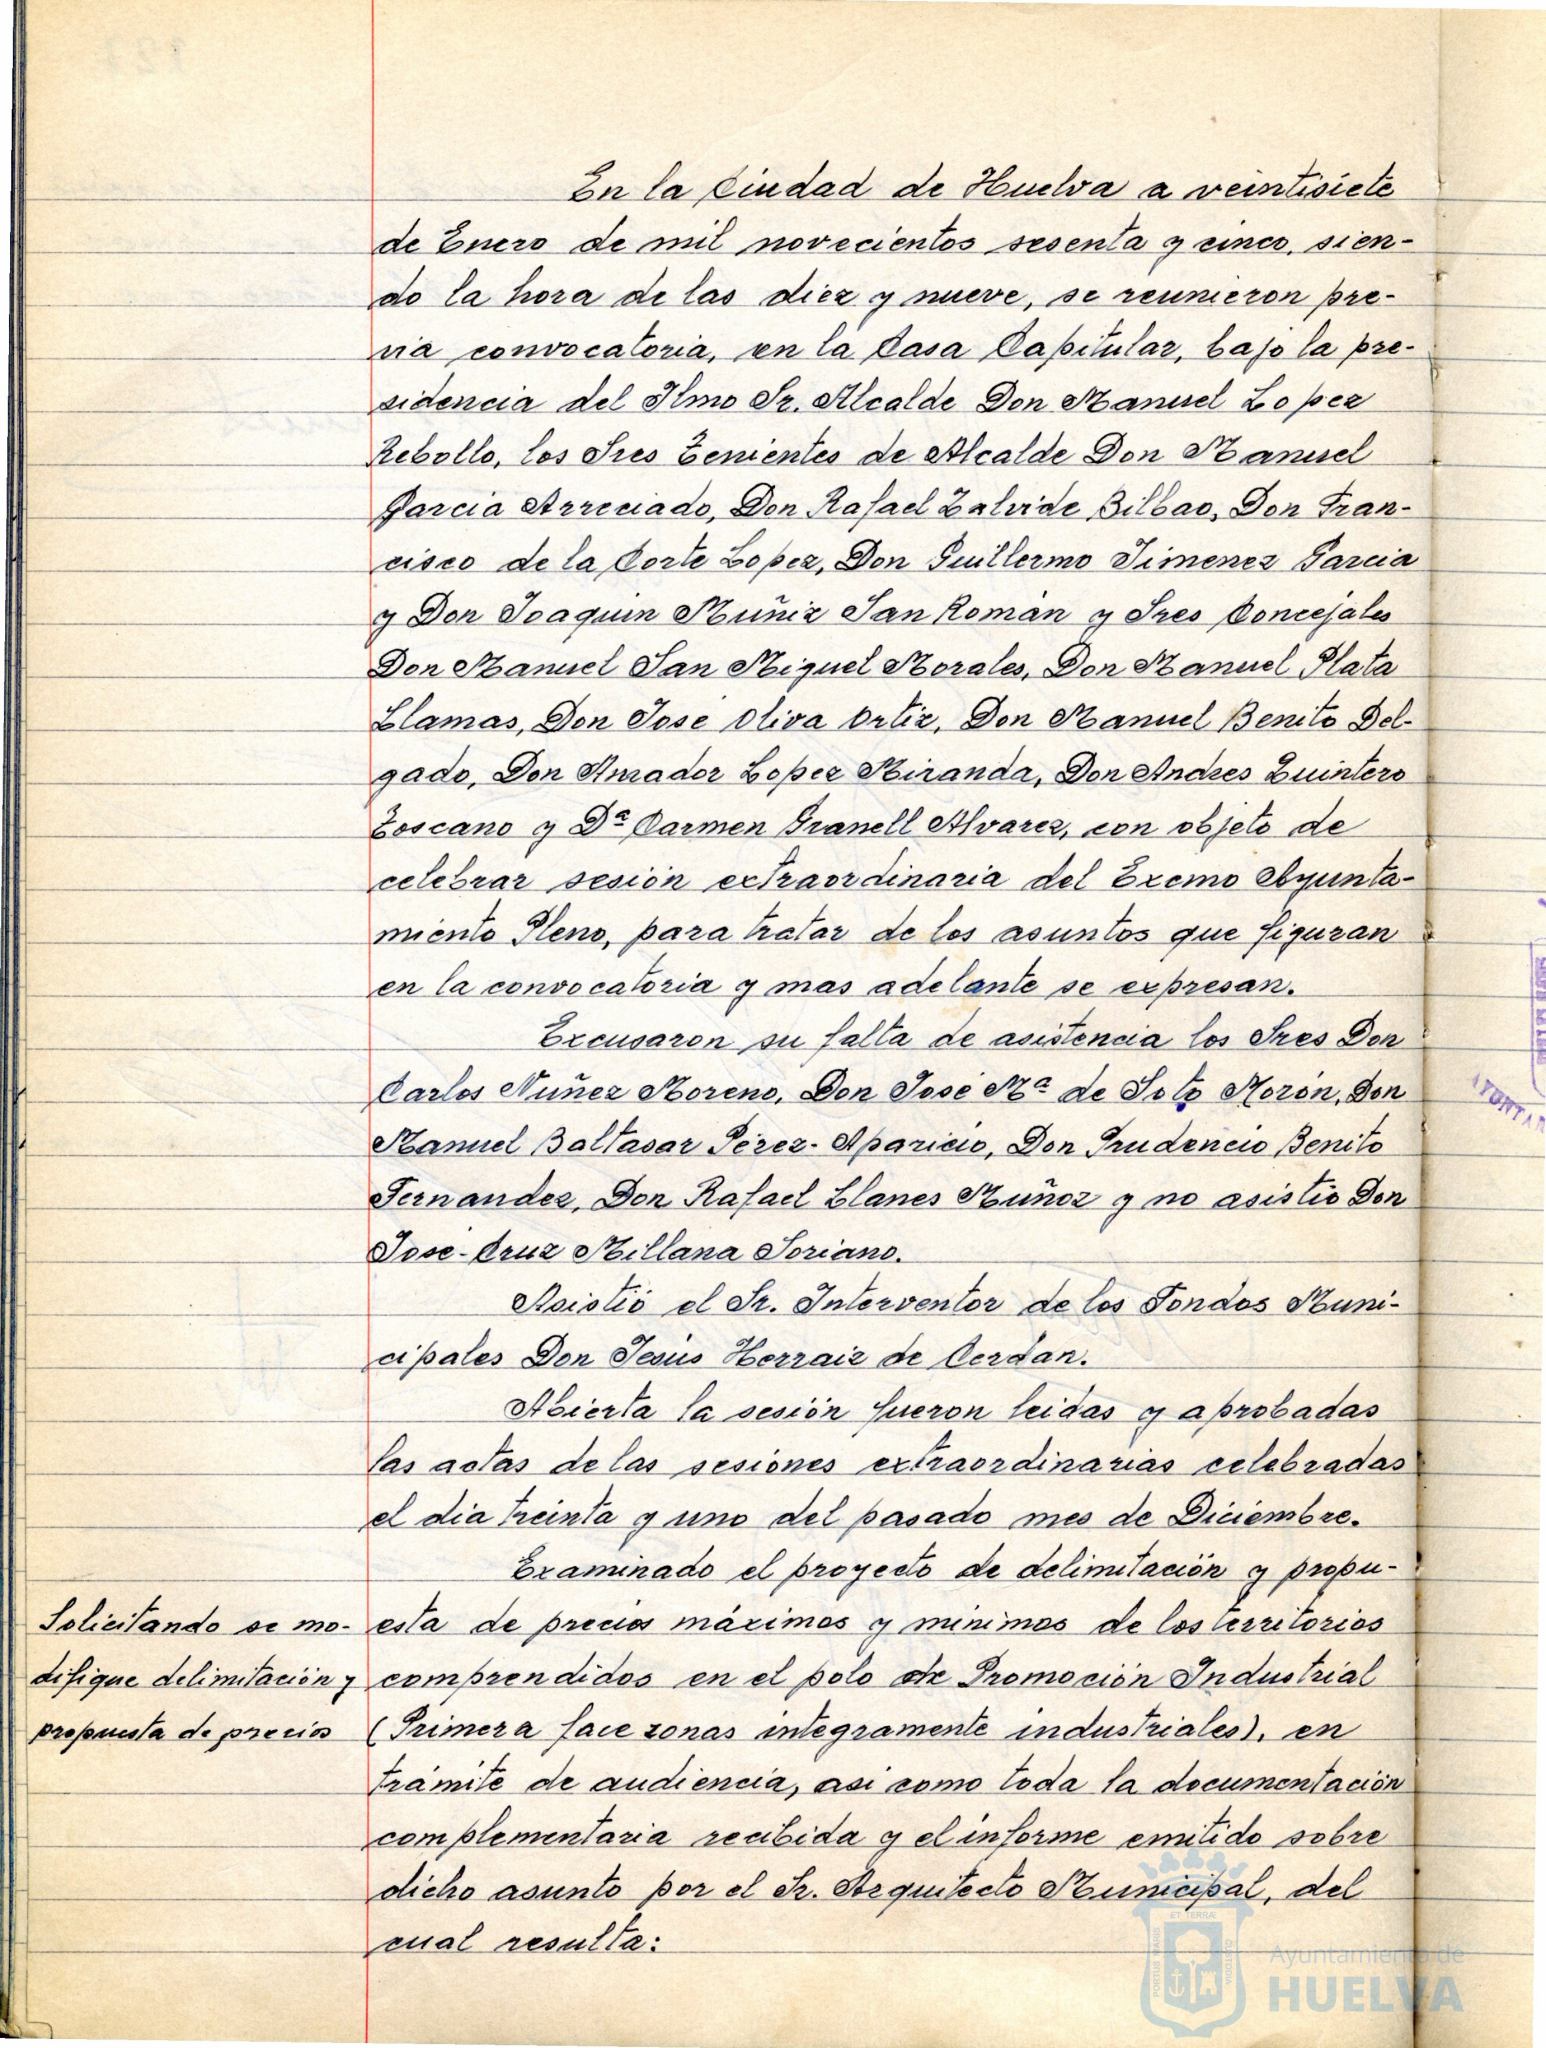 En la Ciudad de Huelva a veintisiete
de Enero de mil novecientos sesenta y cinco, sien-
do la hora de las diez y nueve, se reunieron pre-
via convocatoria, en la Casa Capitular, bajo la pre-
sidencia del Ilmo Sr. Alcalde Don Manuel Lopez
Rebollo, los Sres Tenientes de Alcalde Don Manuel
Garcia Arreciado, Don Rafael Zalvide Bilbao, Don Fran-
cisco de la Corte Lopez, Don Guillermo Jimenez Garcia
y Don Joaquin Muñiz San Román y Sres Concejales
Don Manuel San Miguel Morales, Don Manuel Plata
Llamas, Don Jose Oliva Ortiz, Don Manuel Benito Del-
gado, Don Amador Lopez Miranda, Don Andres Quintero
Toscano y Dª Carmen Granell Alvarez, con objeto de
celebrar sesión extraordinaria del Excmo Ayunta-
miento Pleno, para tratar de los asuntos que figuran
en la convocatoria y mas adelante se expresan.
Excusaron su falta de asistencia los Sres Don
Carlos Nuñez Moreno, Don José Mª de Soto Morón, Don
Manuel Baltasar Pérez-Aparicio, Don Prudencio Benito
Fernandez, Don Rafael Llanes Muñoz y no asistió Don
Jose-Cruz Millana Soriano.
Asistió el Sr. Interventor de los Fondos Muni-
cipales Don Jesús Herraiz de Cerdan.
Abierta la sesión fueron leidas y aprobadas
las actas de las sesiones extraordinarias celebradas
el dia treinta y uno del pasado mes de Diciembre.
Examinado el proyecto de delimitación y propu-
Solicitando se mo-
difique delimitación y
propuesta de precios
esta de precios máximos y minimos de los territorios
comprendidos en el polo de Promoción Industrial
(Primera face zonas integramente industriales), en
trámite de audiencia, asi como toda la documentación
complementaria recibida y el informe emitido sobre
dicho asunto por el Sr. Arquitecto Municipal, del
cual resulta:
AYUNTA
ET TERRÆ
PORTUS MARIS
Ayuntamiento de
HUELVA